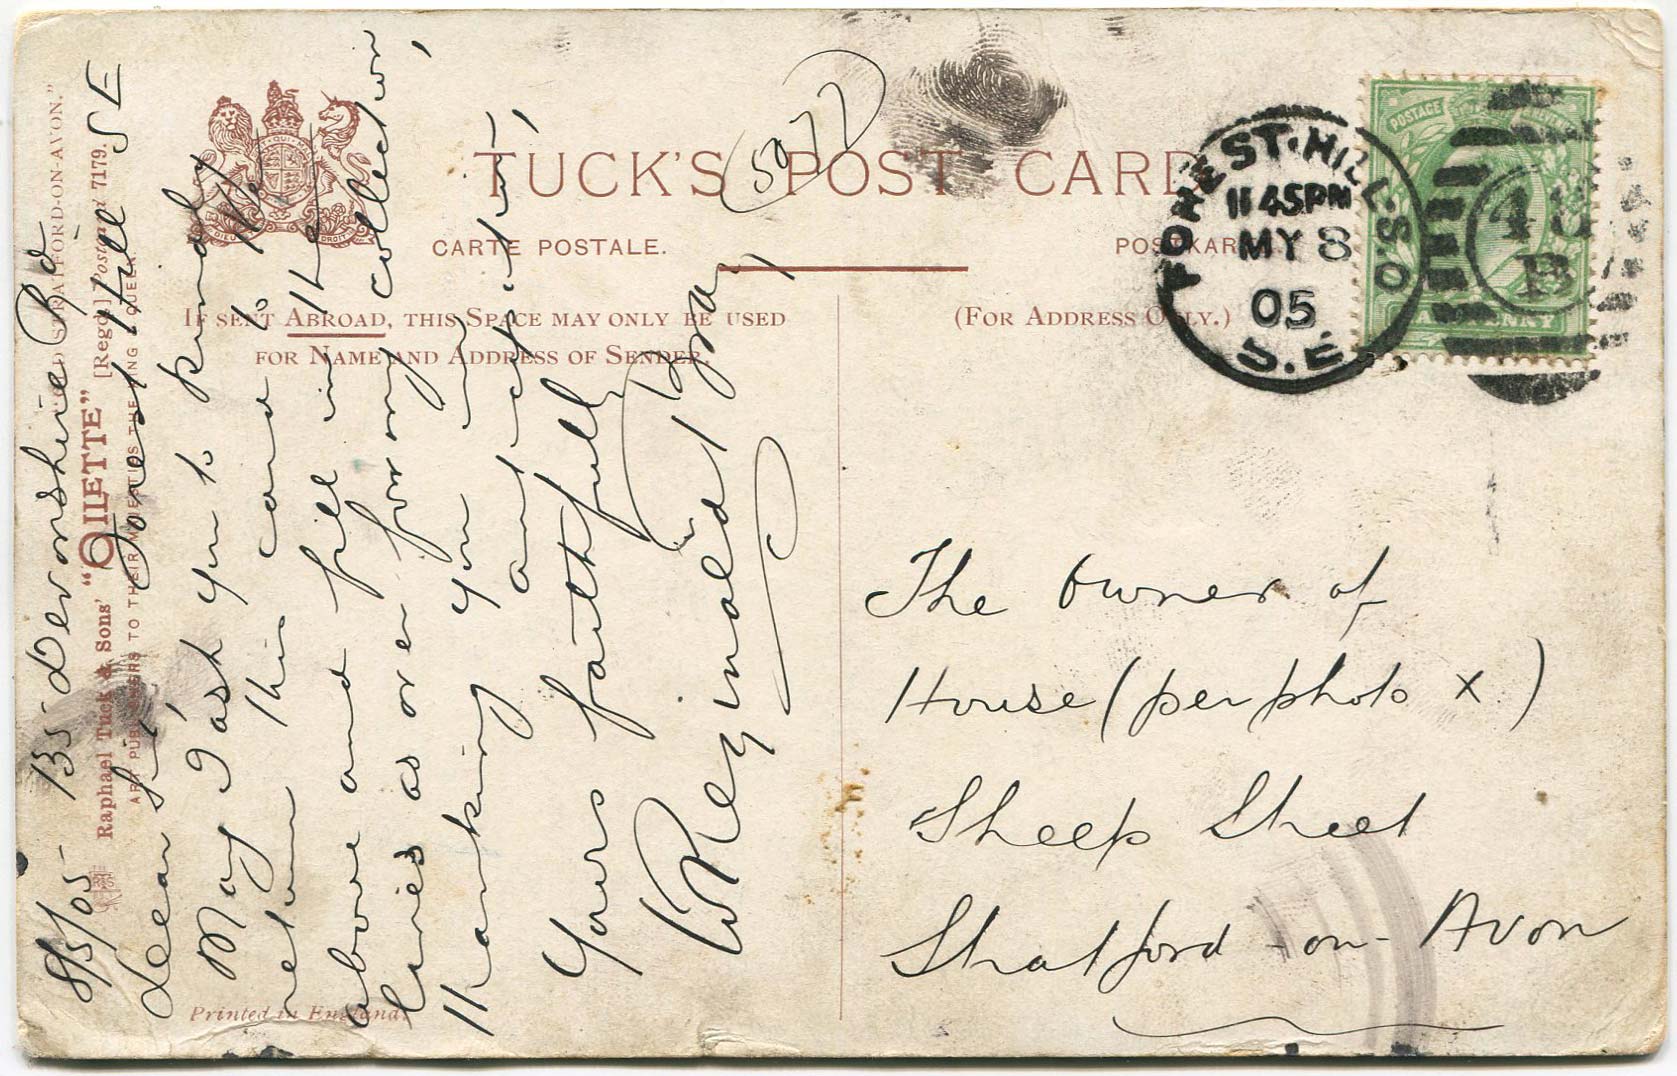 TUCK'S POST CARD
5977
CARTE POSTALE.
IF SENT ABROAD, THIS SPACE MAY ONLY BE USED
FOR NAME AND ADDRESS OF SENDER.
(FOR ADDRESS ONLY.)
FOREST·HILL·S.O
11 45PM
MY 8
05
S.E.
POSTAGE
B
8/5/05 - 135 Devonshire Rd
Forest Hill SE
Dear Sir,
May I ask you to kindly
return this card to the
above and fill in the
lines as over for my collection,
thanking you in
anticipation,
Yours faithfully
Reginald
The Owner of
House (per photo x)
Sheep Street
Stratford-on-Avon
"OLD STRATFORD-ON-AVON."
Raphael Tuck & Sons' "OILETTE" [Regd.] Postcard 7179.
ART PUBLISHERS TO THEIR MAJESTIES THE KING & QUEEN
Printed in England.